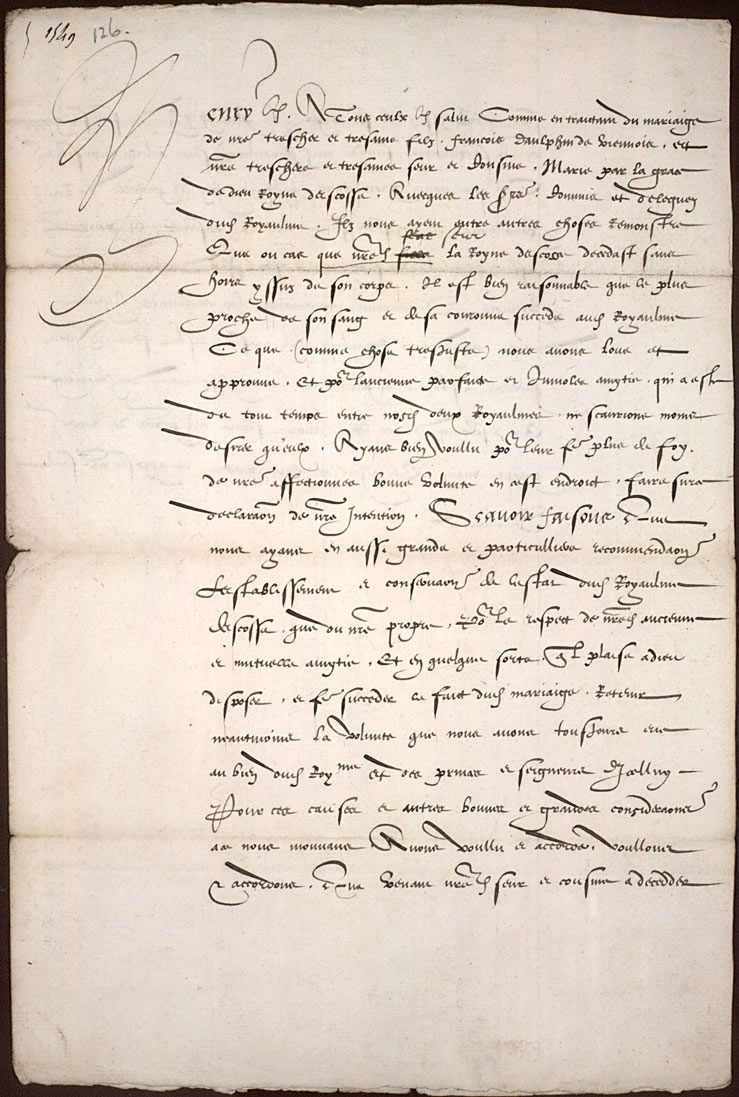 1549 126.
Henry &c. A Tous ceulx &c salut Comme en traictant du mariaige
de nre trescher et tresame filz . Francois daulphin de Viennois . et
nre treschere et tresamee seur et cousine . Marie par la grace
de dieu Royne descosse . Avecques les commis et deleguez
dud Royaulme . Ilz nous ayent entre autres choses Remonstre
feue seur
Que ou cas que nred fille la Royne descosse decedast sans
hoirs yssuz de son corps . Il est bien raisonnable que le plus
proche de son sang et de sa couronne succede aud Royaulme
Ce que (comme chose tresjuste) nous avons loue et
approuve . Et por lancienne parfaite et Inviolee amytie . qui a este
de tout temps entre nosd deux Royaulmes . ne scaurions moins
desirer qu'eulx . Ayans bien voullu por leur fe plus de foy .
de nre affectionnee bonne volunte en cest endroit . faire sur ce
declaraon de nre Intention . Scavoir faisons Que
nous ayans en aussi grande et particulliere recommendaon
Lestablissement et conservaon de lestat dud Royaulme
descosse . que du nre propre . Por le respect de nred ancienne
et mutuelle amytie . Et en quelque sorte ql plaise a dieu
disposer . et fe succeder le faict dud mariaige . Retenir
neantmoins la volunte que nous avons tousiours eue
au bien dud Roy.me et des princes et seigneurs dicelluy
Pour ces causes et autres bonnes et grandes consideraons
ad ce nous mouvans Avons voullu et accorde . voullons
& accordons . Que venant nred seur et cousine a decedder